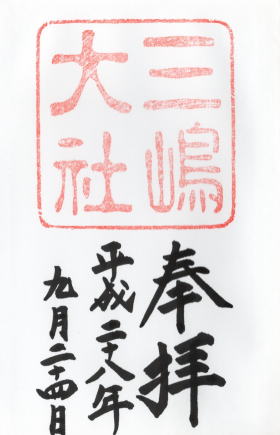 三嶋
大社
奉拝
平成二十八年
九月二十四日